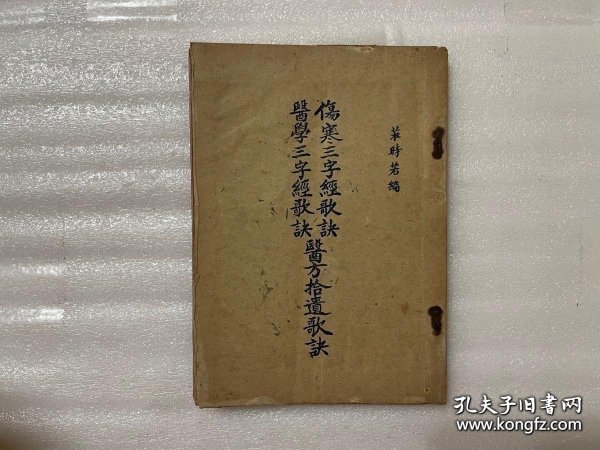 時若編
傷寒三字經歌訣
醫學三字經歌訣
醫方拾遺歌訣
孔夫子旧书网
www.kongfz.com